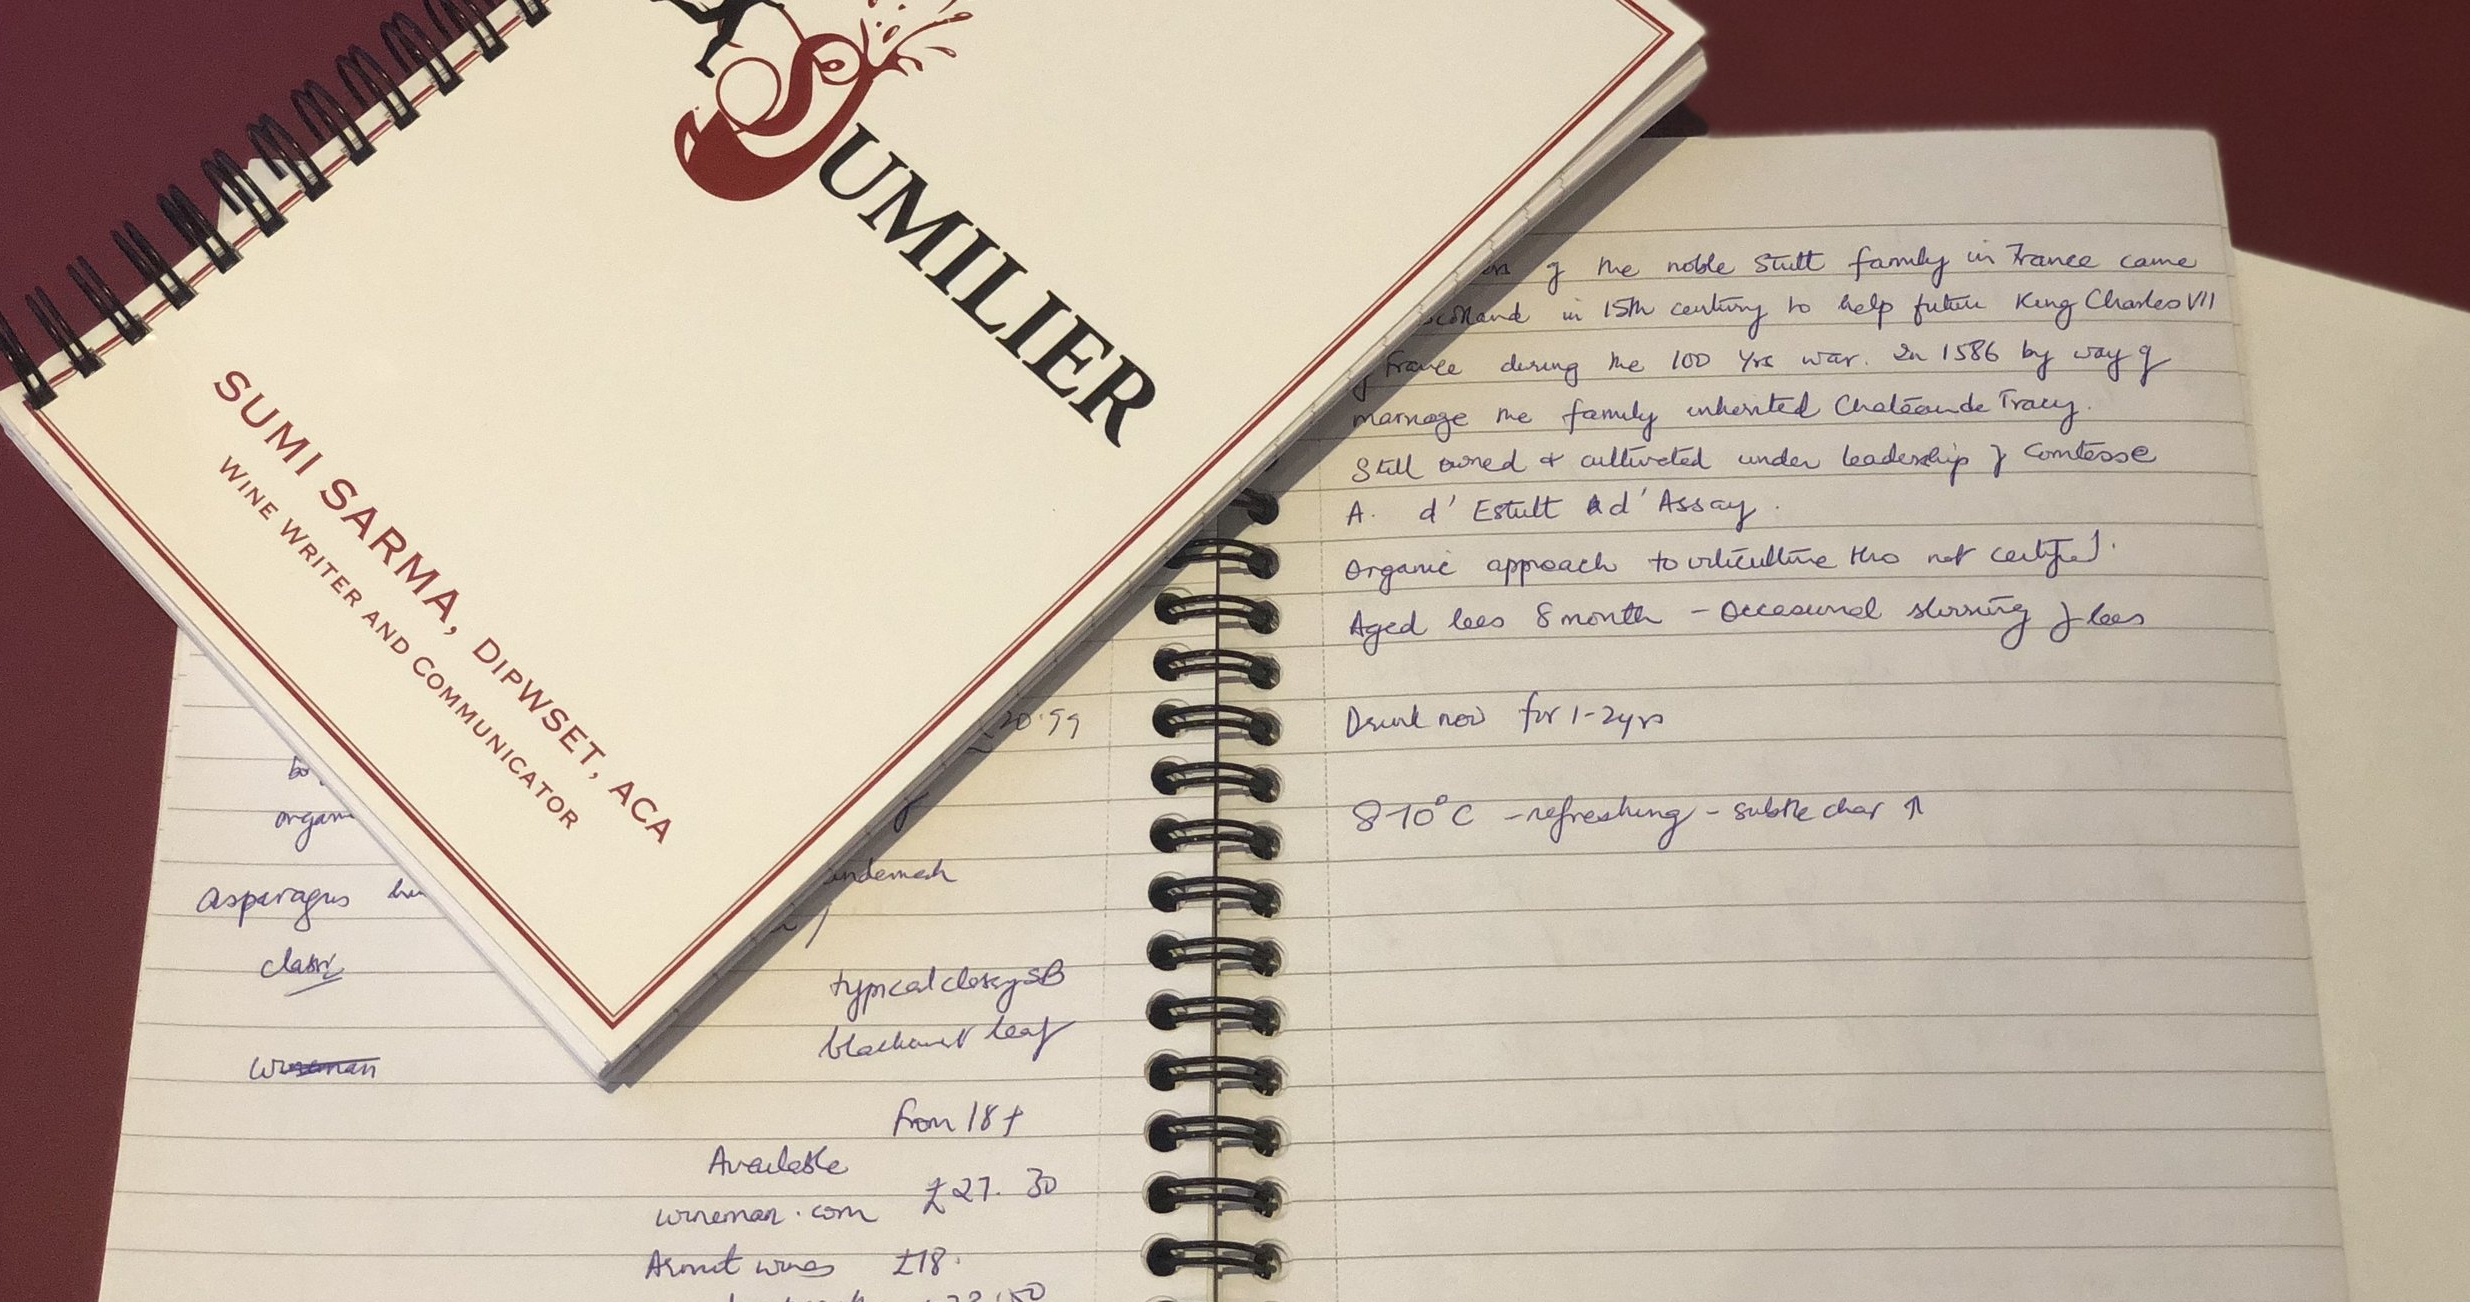 SUMILIER
SUMI SARMA, DIPWSET, ACA
WINE WRITER AND COMMUNICATOR
20.99
organ
asparagus
classic
wineman
typical classy SB
blackcurrant leaf
from 18+
Available
£27.30
wineman.com
wines £18.
of the noble Stutt family in France came
Scotland in 15th century to help future King Charles VII
of France during the 100 Yrs war. In 1586 by way of
marriage the family inherited Chateau de Tracy.
Still owned + cultivated under leadership of Comtesse
A. d'Estutt d'Assay.
Organic approach to viticulture tho not certified.
Aged lees 8 month - Occasional stirring of lees
Drink now for 1-2yrs
8-10°C - refreshing - subtle char ↑